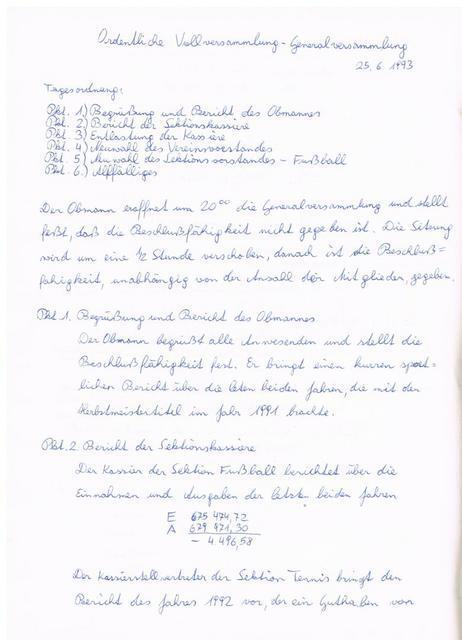 Ordentliche Vollversammlung - Generalversammlung
25.6.1993
Tagesordnung:
Pkt. 1.) Begrüßung und Bericht des Obmannes
Pkt. 2.) Bericht der Sektionskassiere
Pkt. 3.) Entlastung der Kassiere
Pkt. 4.) Neuwahl des Vereinsvorstandes
Pkt. 5.) Neuwahl des Sektionsvorstandes - Fußball
Pkt. 6.) Allfälliges
Der Obmann eröffnet um 20⁰⁰ die Generalversammlung und stellt
fest, daß die Beschlußfähigkeit nicht gegeben ist. Die Sitzung
wird um eine 1/2 Stunde verschoben, danach ist die Beschluß=
fähigkeit, unabhängig von der Anzahl der Mitglieder, gegeben.
Pkt 1. Begrüßung und Bericht des Obmannes
Der Obmann begrüßt alle Anwesenden und stellt die
Beschlußfähigkeit fest. Er bringt einen kurzen sport=
lichen Bericht über die letzten beiden Jahren, die mit der
Herbstmeistertitel im Jahr 1991 brachte.
Pkt. 2. Bericht der Sektionskassiere
Der Kassier der Sektion Fußball berichtet über die
Einnahmen und Ausgaben der letzten beiden Jahren
E 675 474,72
A 679 971,30
- 4.496,58
Der Kassierstellvertreter der Sektion Tennis bringt den
Bericht des Jahres 1992 vor, der ein Guthaben von